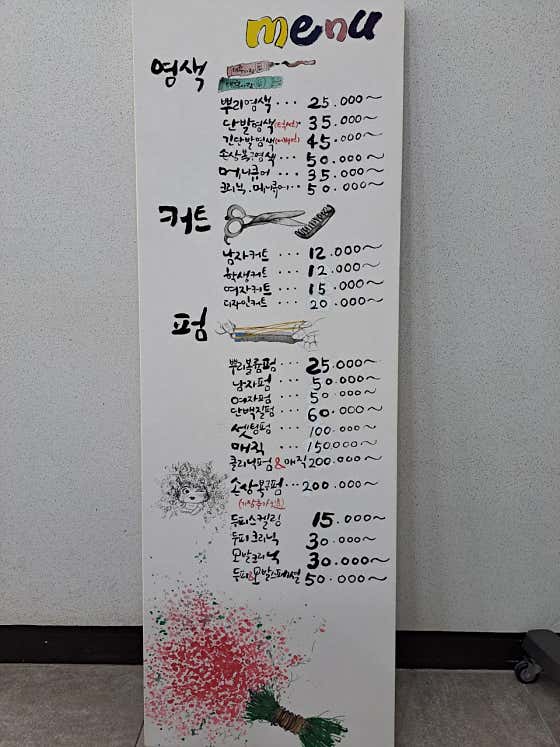 menu
염색
뿌리염색 ... 25.000~
단발염색 35.000~
긴단발염색 45.000~
손상복구염색 ... 50.000~
매니큐어 ... 35.000~
크리닉.매니큐어 .. 50.000~
커트
남자커트 ... 12.000~
학생커트 ... 12.000~
여자커트 ... 15.000~
디자인커트 ... 20.000~
펌
뿌리볼륨펌 ... 25.000~
남자펌 ... 50.000~
여자펌 ... 50.000~
단백질펌 ... 60.000~
셋팅펌 ... 100.000~
매직 ... 150.000~
클리닉펌&매직 200.000~
손상복구펌 ... 200.000~
두피스켈링 15.000~
두피크리닉 30.000~
모발크리닉 30.000~
두피&모발스페셜 50.000~